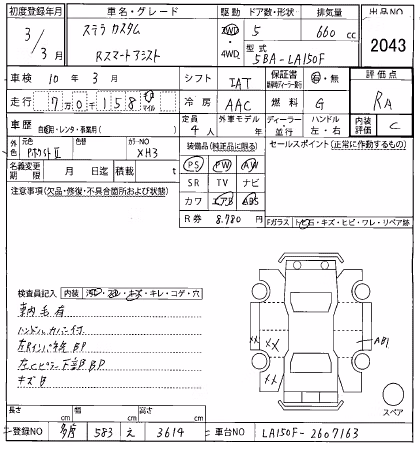 初度登録年月 車名・グレード 駆動 ドア数・形状 排気量 出品NO
3/3月 ステラ カスタム 2WD 5 660cc 2043
Rスマートアシスト 4WD 型式 5BA-LA150F
車検 10年 3月 シフト IAT 保証書 有・無 評価点
走行 7万0千158 キロ マイル 冷房 AAC 燃料 G RA
車歴 自家用・レンタ・事業用( ) 定員 4人 外車モデル 年 ディーラー・並行 ハンドル 左・右 内装評価 C
外色 元色 色替 カラーNO XH3 装備品(純正品に限る) セールスポイント(正常に作動するもの)
PS PW AW
名義変更期限 月 日迄 積載 t SR TV ナビ
注意事項(欠品・修復・不具合箇所および状態) カワ エアB ABS
R券 8,780円 Fガラス トビ石・キズ・ヒビ・ワレ・リペア跡
検査員記入 内装 汚レ・スレ・キズ・キレ・コゲ・穴
車内毛有
ハンドルカバー付
BP
左Cピラー下部BP
キズ B
XX
XX
AB1
スペア
長さ cm 幅 cm 高さ cm
登録NO 多摩 583 え 3614 車台NO LA150F-2607163